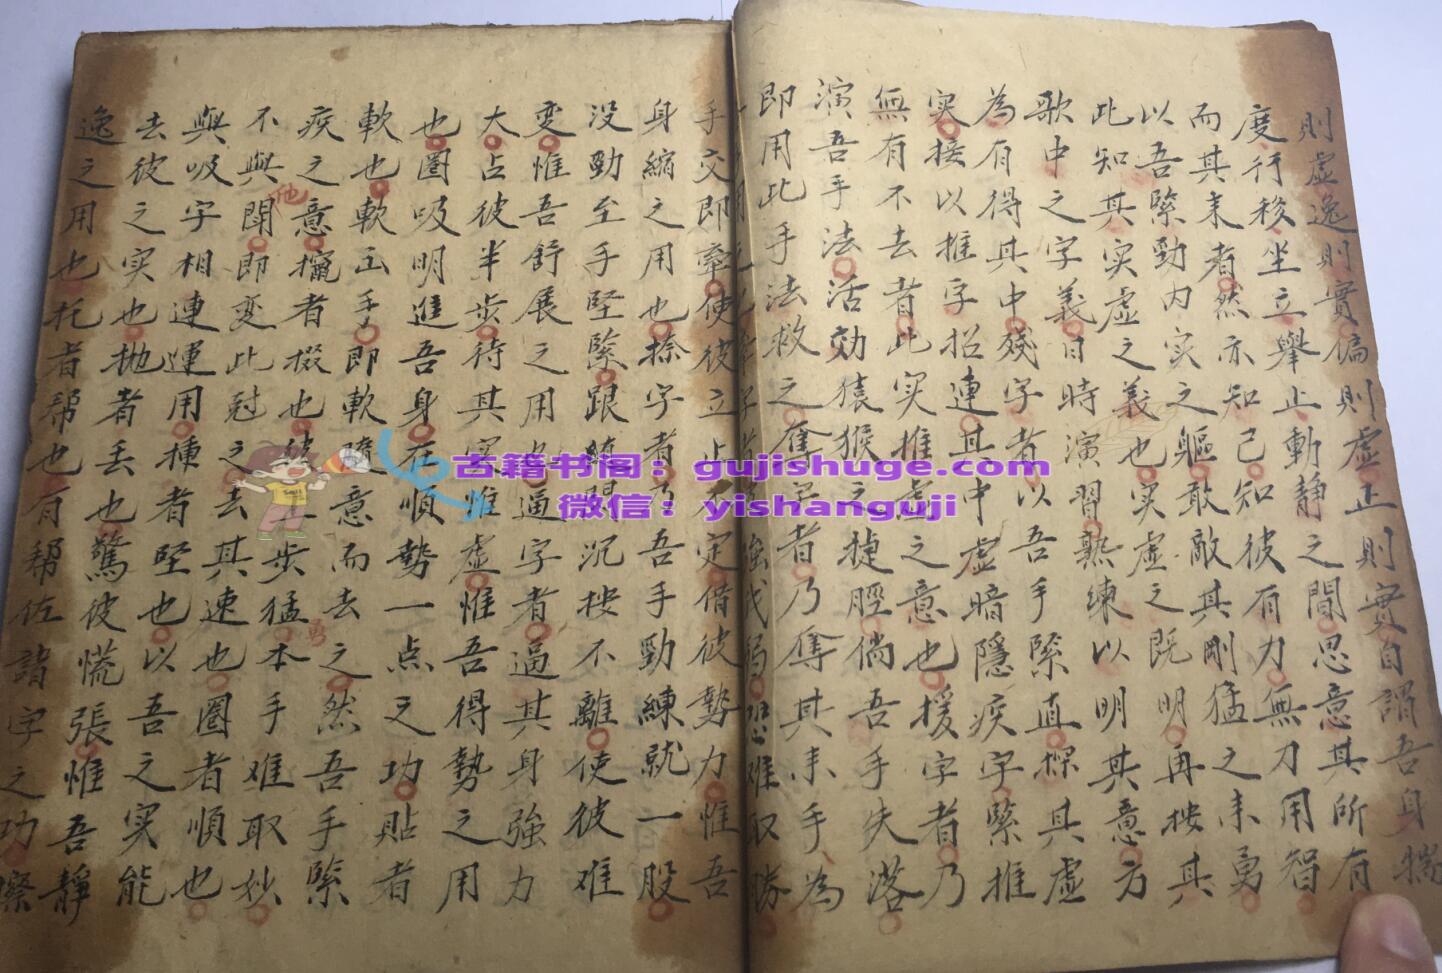 則虛逸則實偏則虛正則實自謂吾身揣
度行移坐立舉止動靜之間思意其所有
而其未者然亦知己知彼有力無刀用智
以吾緊勁內实之軀敢敵其剛猛之未勇
此知其实虛之義也实虛之既明再按其
歌中之字義日時演習熟練以明其意方
為有得其中殘字者以吾手緊直探其虛
实接以推字招連其中虛暗隱疾字緊推
無有不去者此实推虛之意也援字者乃
演吾手法活効猿猴之捷脛倘吾手失落
即用此手法救之奪字者乃奪其未手為
难取勝
手交即牽使彼立止不定借彼勢力惟吾
身縮之用也捺字者乃吾手勁練就一股
没勁至手堅緊跟隨沉按不離使彼难
变惟吾舒展之用也逼字者逼其身強力
大占彼半步待其实惟虛惟吾得勢之用
也圈吸明進吾身在順勢一点之功貼者
軟也軟正手即軟隨意而去之然吾手緊
疾之意擺者掇也彼一步猛本手难取妙
不與他開即变此冠之去其速也圈者順也
與吸字相連運用種者堅也以吾之实能
去彼之实也抛者丢也驚彼慌張惟吾靜
逸之用也托者帮也有帮佐諸字之功
勇
古籍书阁：gujishuge.com
微信：yishanguji